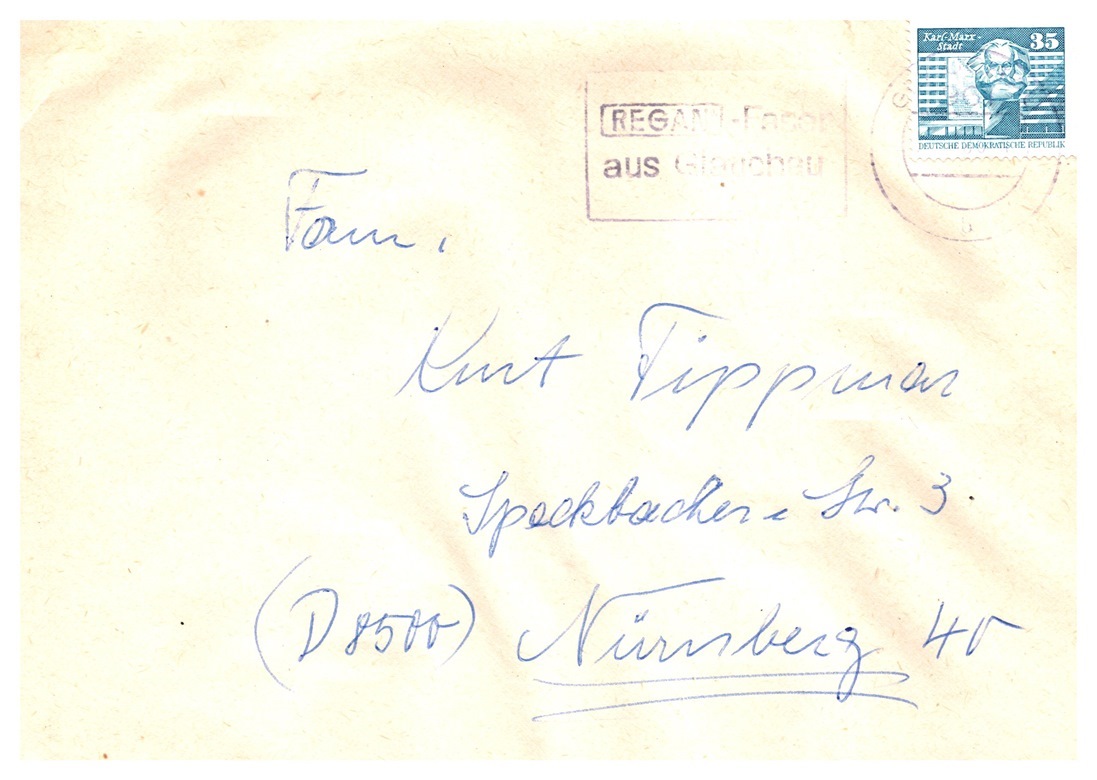 Karl-Marx-
Stadt
35
DEUTSCHE DEMOKRATISCHE REPUBLIK
REGAN-Faser
aus Glauchau
b
Fam.
Kurt Tippman
Speckbacher-Str. 3
(D 8500) Nürnberg 40